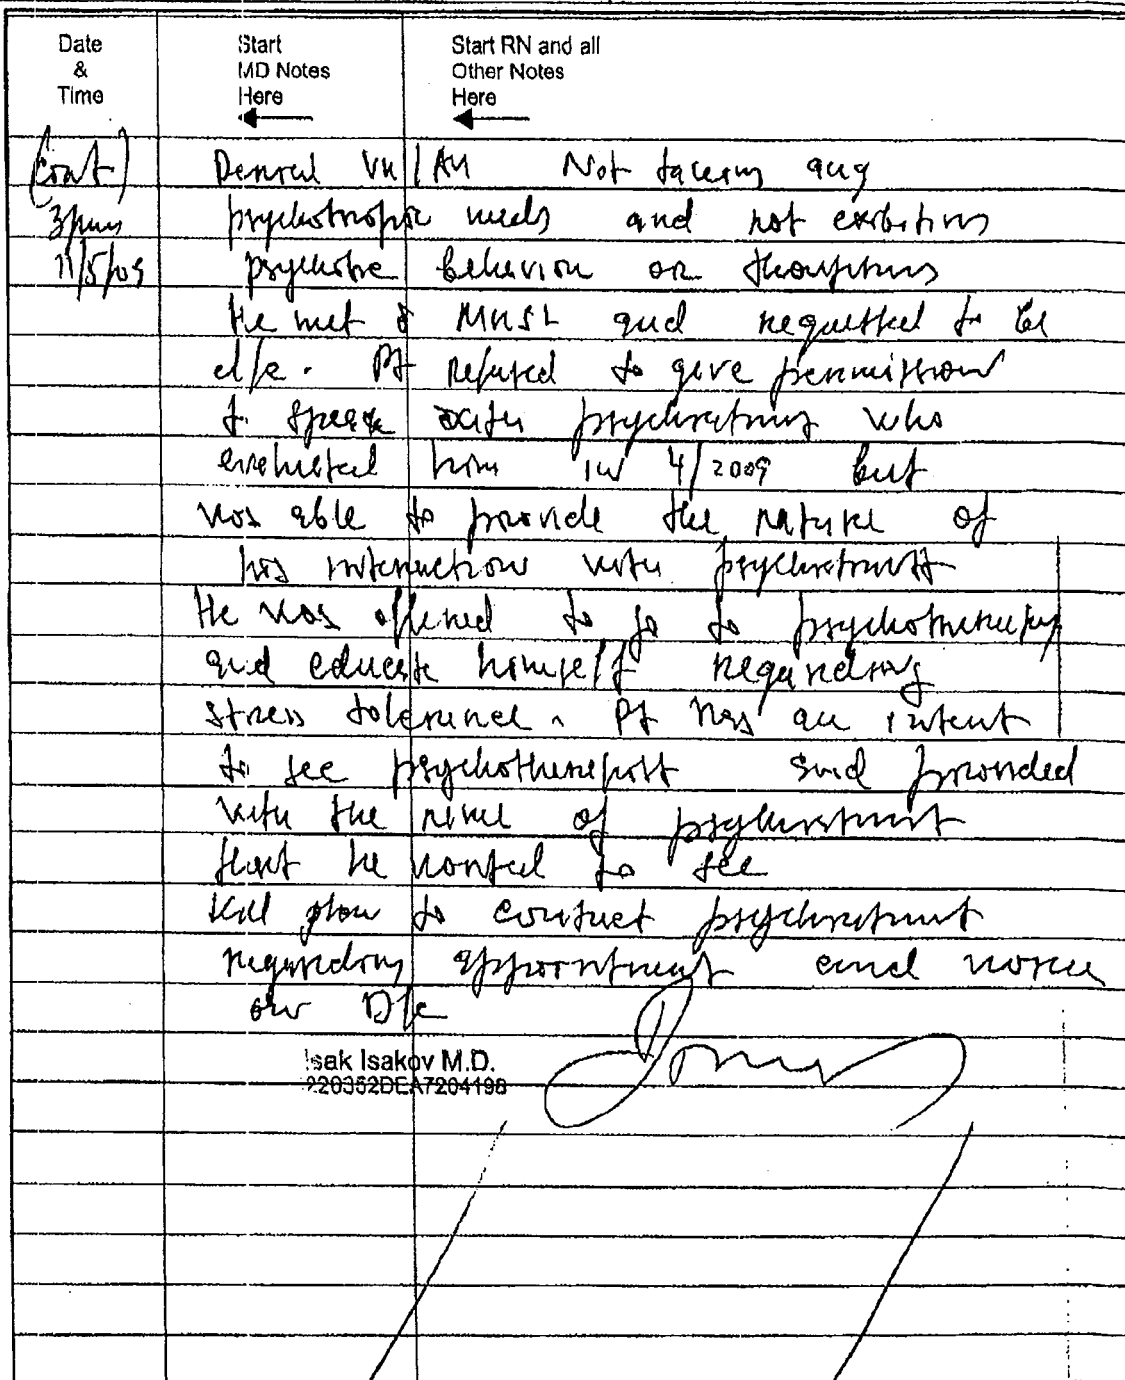 Date & Time
Start MD Notes Here
Start RN and all Other Notes Here
(cont) Denied VH/AH Not taking any
3pm psychotropic meds and not exibiting
11/5/09 psychotic behavior or
He met MHSL and requested to be
d/c. Pt refused to give permission
to speak with psychiatrist who
evaluated him in 4/2009 but
was able to provide the nature of
his interaction with psychiatrist
He was offered to go to psychotherapy
and educate himself regarding
stress tolerance. Pt has an intent
to see psychotherapist and provided
with the name of psychiatrist
that he wanted to see
Will plan to contact psychiatrist
regarding appointment and
on D/c
Isak Isakov M.D.
220352DEA7204198